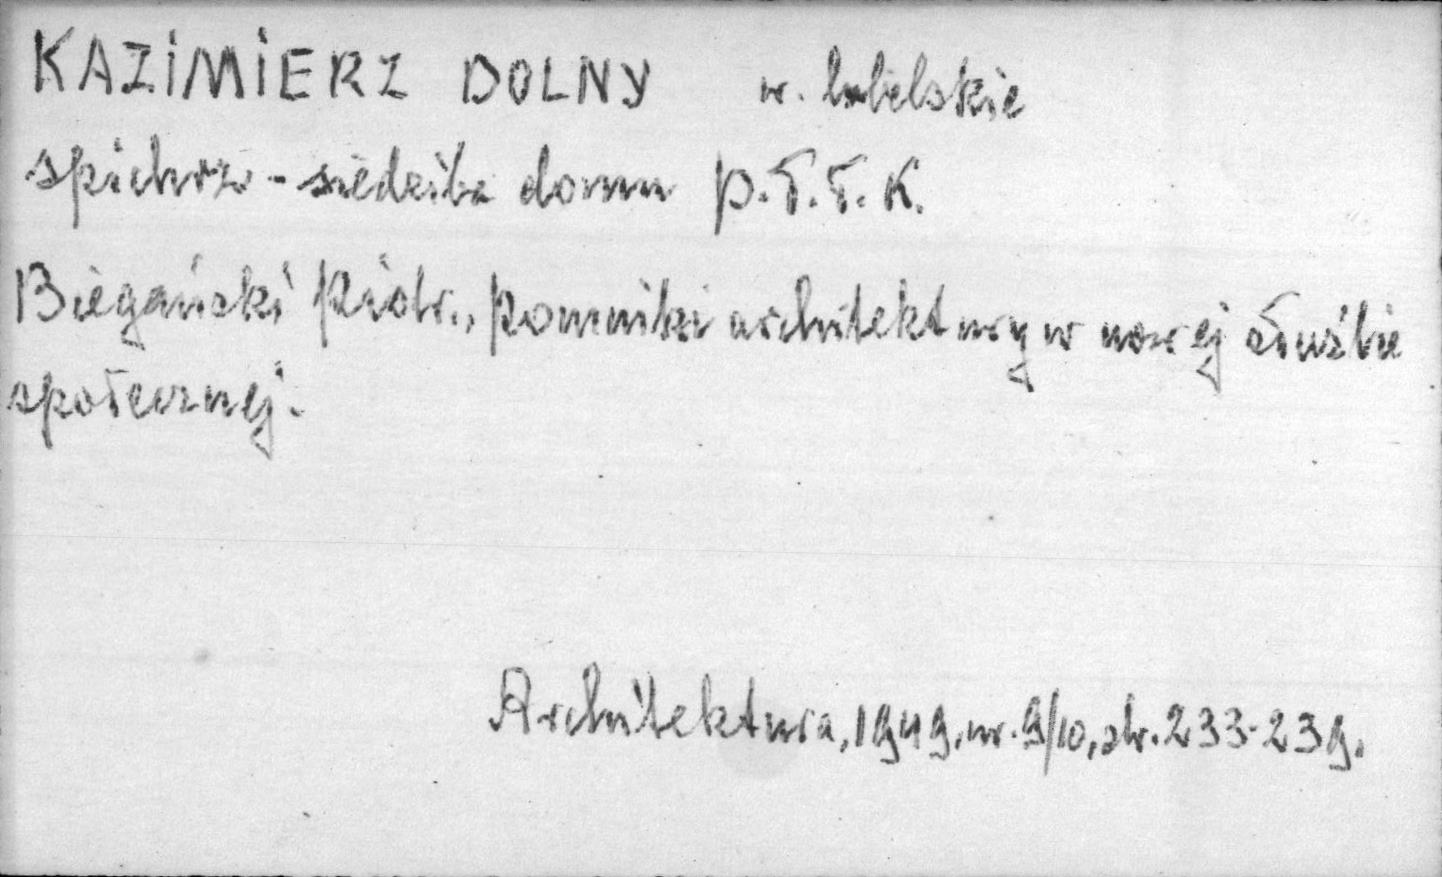 KAZIMIERZ DOLNY w. lubelskie
spichrz - siedziba domu P.T.T.K.
Biegański Piotr., Pomniki architektury w nowej służbie
społecznej.
Architektura, 1949, nr. 9/10, str. 233-239.